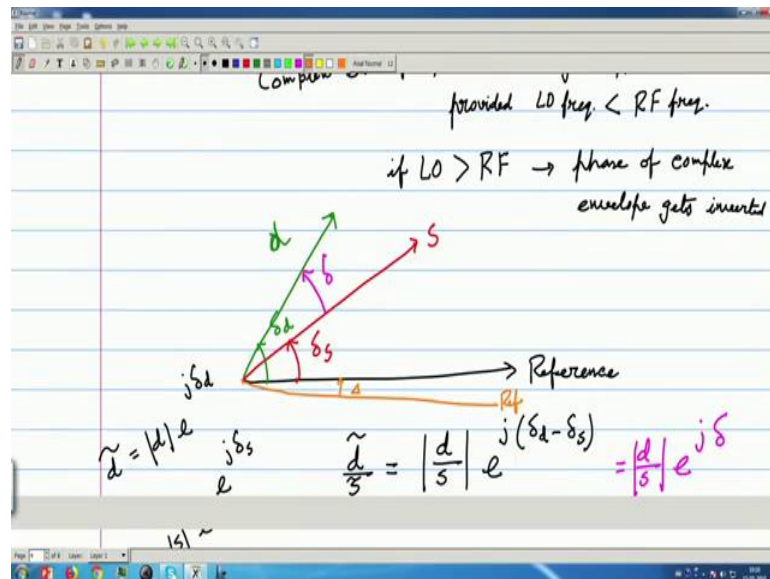 File Edit View Page Tools Options Help
Arial Normal 12
provided LO freq. < RF freq.
if LO > RF → phase of complex
envelope gets inverted
d
S
δ
δd
δs
Reference
Δ
Ref
d̃ = |d| e^{jδd}
e^{jδs}
d̃/s̃ = |d/s| e^{j(δd - δs)} = |d/s| e^{jδ}
|s|
Page of 8 Layer: Layer 1